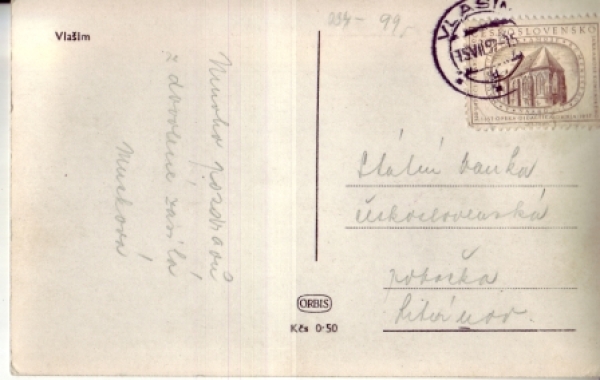 Vlašim
234- 99,-
VLAŠIM
ČESKOSLOVENSKO
Mnoho pozdravů
z dovolené zasílá
Musková
Státní banka
československá
pobočka
ORBIS
Kčs 0·50